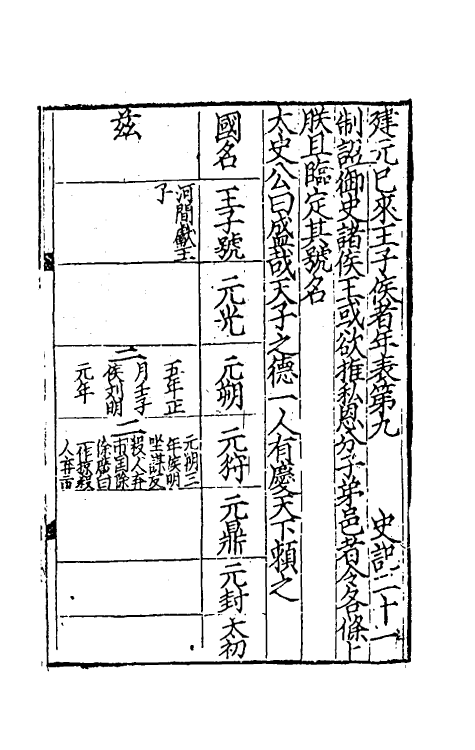 建元已來王子侯者年表第九　史記二十一
制詔御史諸侯王或欲推私恩分子弟邑者令各條上
朕且臨定其號名
太史公曰盛哉天子之德一人有慶天下賴之
國名　王子號　元光　元朔　元狩　元鼎　元封　太初
茲
河間獻王
子
二
五年正
月壬子
侯劉明
元年
二
元朔三
年侯明
坐謀反
殺人弃
市國除
徐廣曰
一作掠殺
人弃市